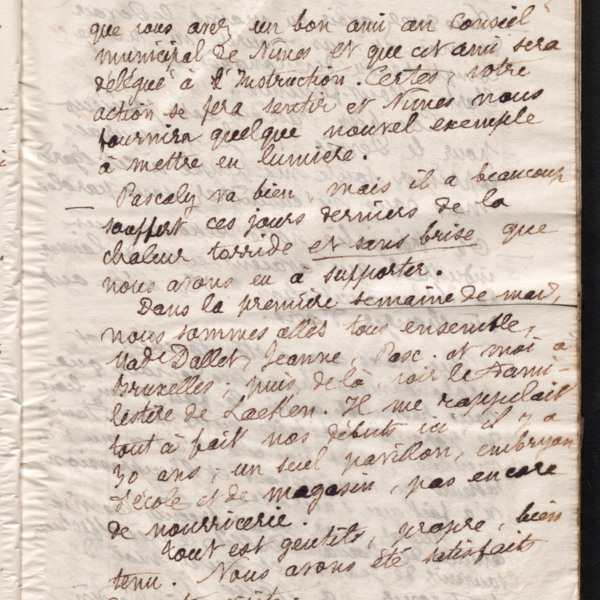 que vous avez un bon ami au conseil
municipal de Nîmes et que cet ami sera
délégué à l'Instruction. Certes, votre
action se fera sentir et Nîmes nous
fournira quelque nouvel exemple
à mettre en lumière.
— Pascaly va bien, mais il a beaucoup
souffert ces jours derniers de la
chaleur torride et sans brise que
nous avons eu à supporter.
Dans la première semaine de mai,
nous sommes allés tous ensemble,
Made Dallet, Jeanne, Pasc. et moi à
Bruxelles; puis, de là, voir le Fami-
listère de Laeken. Il me rappelait
tout à fait nos débuts ici, il y a
30 ans; un seul pavillon, embryon
d'école et de magasin, pas encore
de nourricerie.
Tout est gentil, propre, bien
tenu. Nous avons été satisfaits